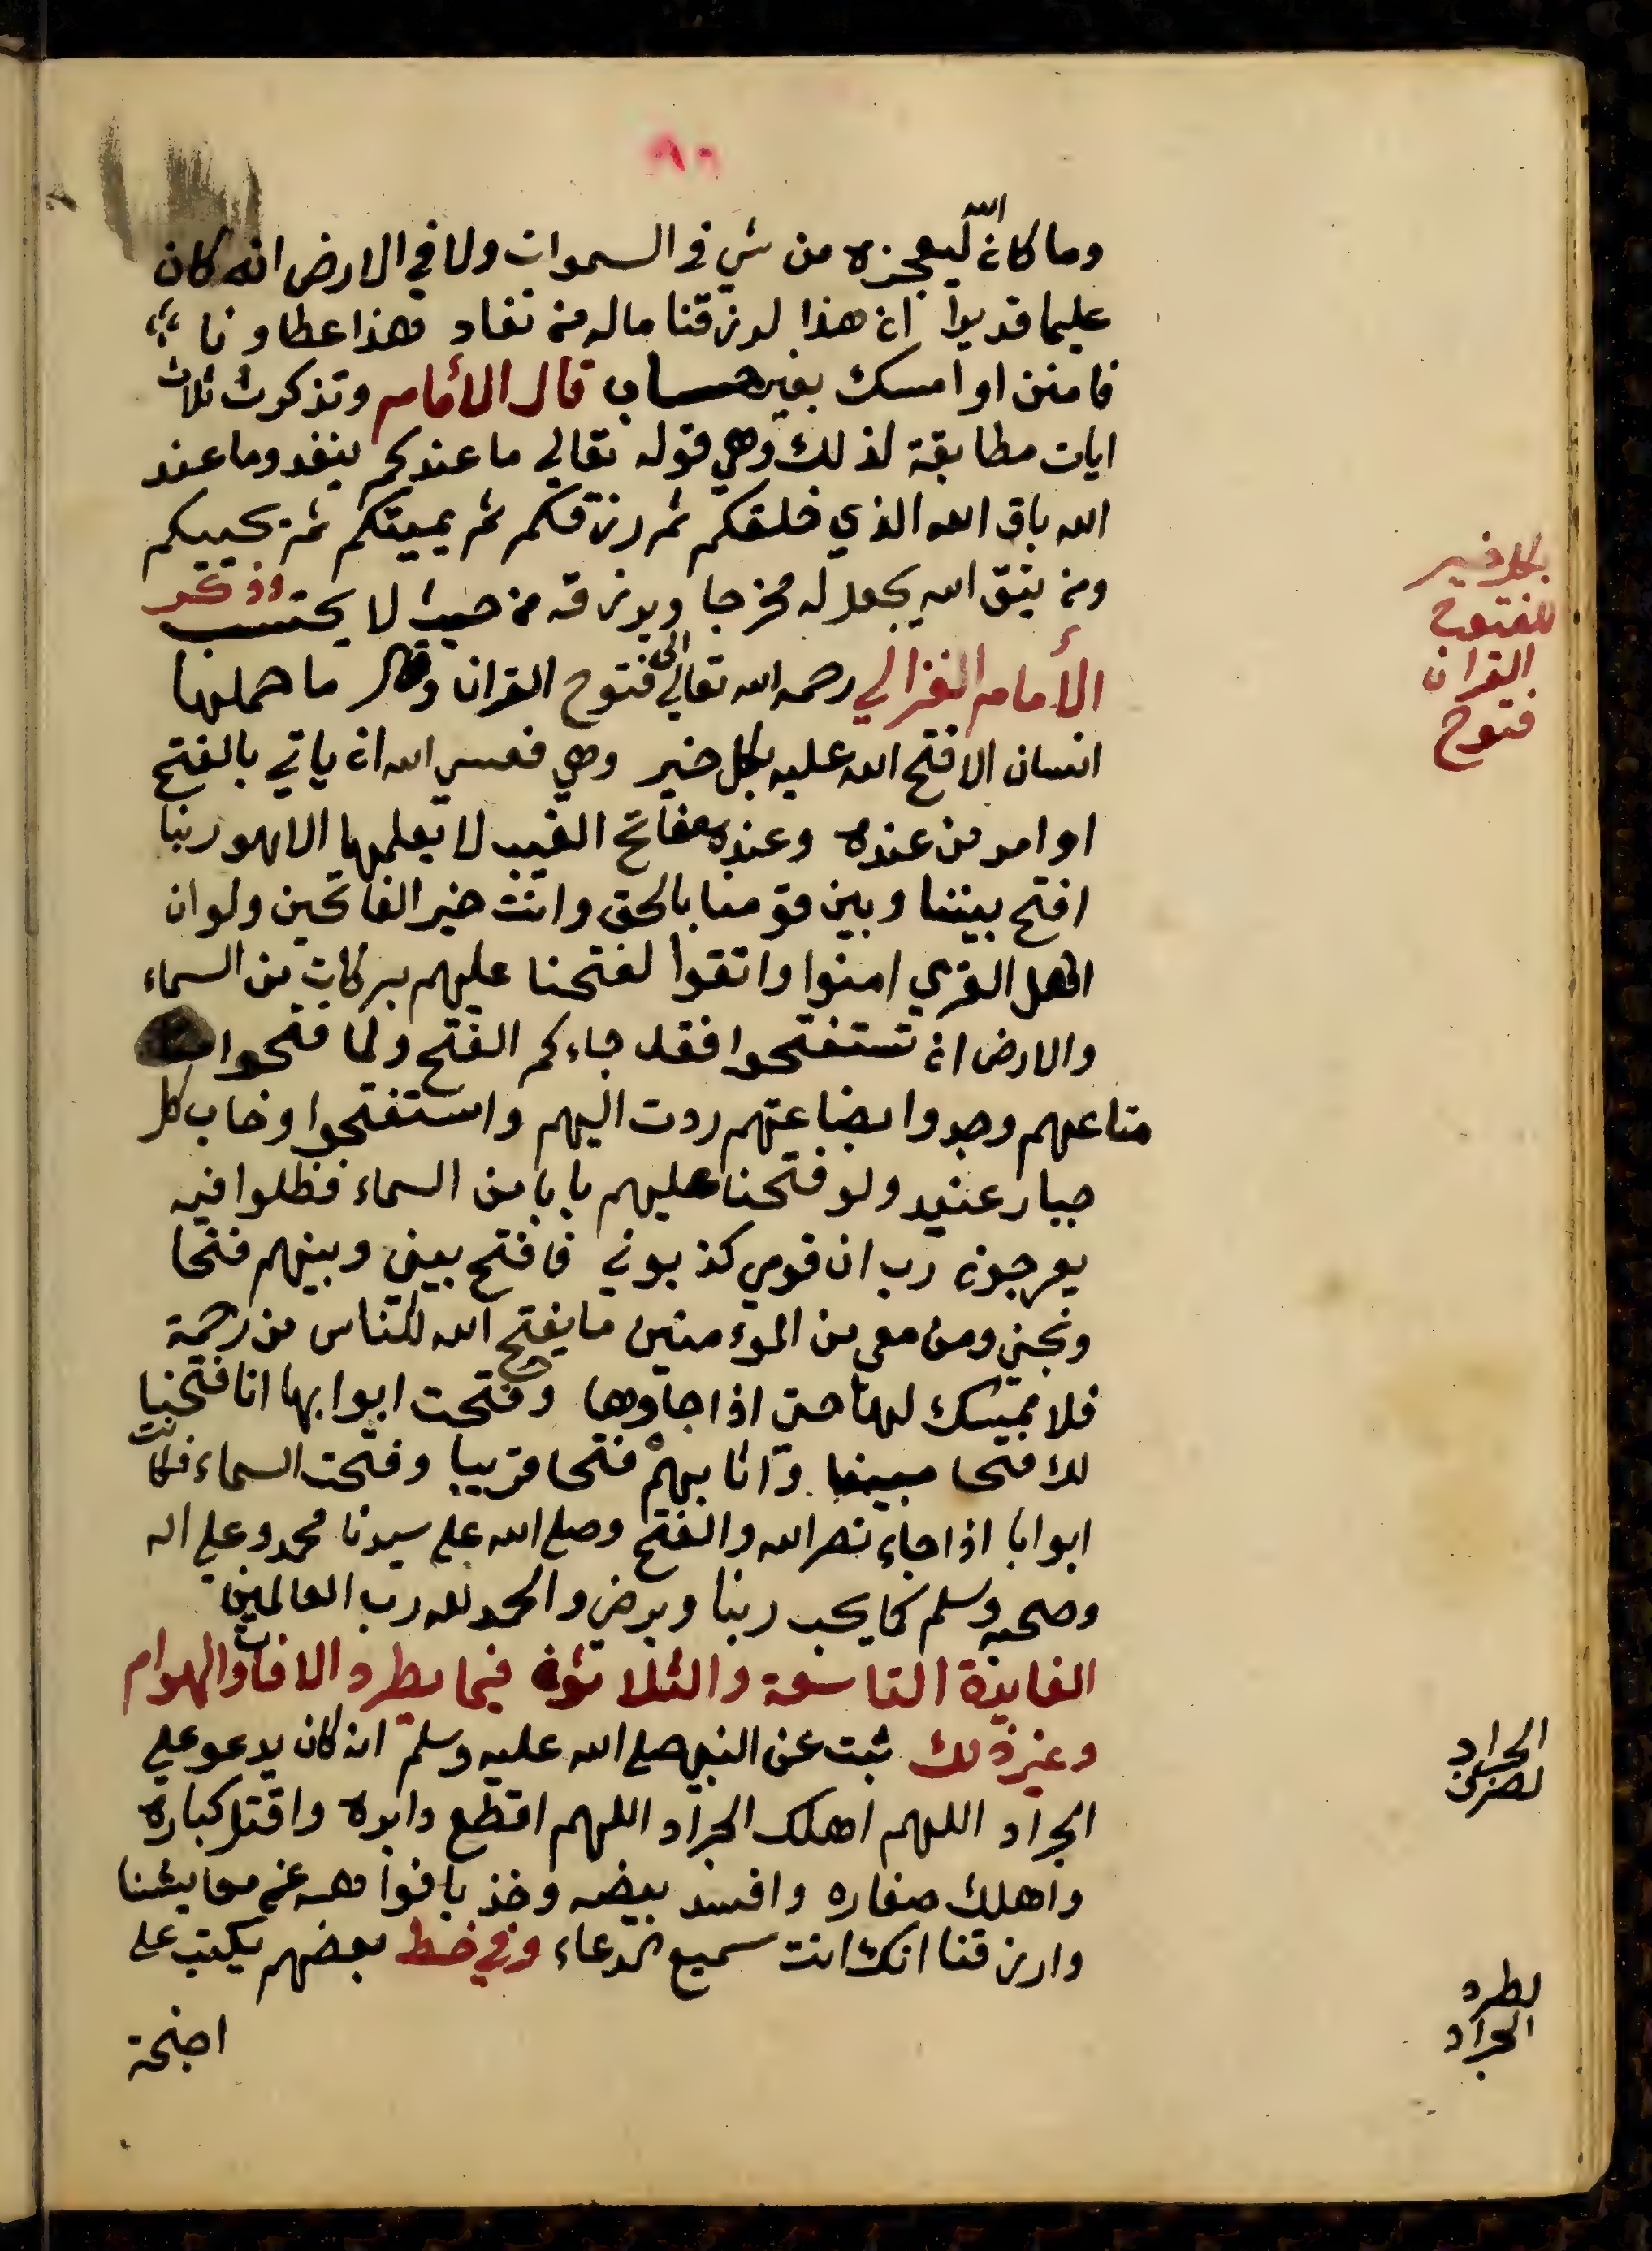 وما كان الله ليعجزه من شي في السموات ولا في الارض انه كان
عليما قديرا ان هذا لرزقنا ماله من نفاد هذا عطاونا
فامنن او امسك بغير حساب قال الأمام وتذكرت ثلاث
ايات مطابقة لذلك وهي قوله تعالي ما عندكم ينفد وما عند
الله باق الله الذي خلقكم ثم رزقكم ثم يميتكم ثم يحييكم
ومن يتق الله يجعل له مخرجا ويرزقه من حيث لا يحتسب وذكر
الأمام الغزالي رحمه الله تعالي الى فتوح القران وقال ما حملها
انسان الا فتح الله عليه بكل خير وهي فعسي الله ان ياتي بالفتح
او امر من عنده وعنده مفاتح الغيب لا يعلمها الا هو ربنا
افتح بيننا وبين قومنا بالحق وانت خير الفاتحين ولو ان
اهل القري امنوا واتقوا لفتحنا عليهم بركات من السماء
والارض ان تستفتحوا فقد جاءكم الفتح ولما فتحوا
متاعهم وجدوا بضاعتهم ردت اليهم واستفتحوا وخاب كل
جبار عنيد ولو فتحنا عليهم بابا من السماء فظلوا فيه
يعرجون رب ان قومي كذبون فافتح بيني وبينهم فتحا
ونجني ومن معي من الموءمنين ما يفتح الله للناس من رحمة
فلا ممسك لها حتى اذا جاوها وفتحت ابوابها انا فتحنا
لك فتحا مبينا واثابهم فتحا قريبا وفتحت السماء فكانت
ابوابا اذا جاء نصر الله والفتح وصلى الله على سيدنا محمد وعلي اله
وصحبه وسلم كما يحب ربنا ويرضى والحمد لله رب العالمين
الفايدة التاسعة والثلاثون فيما يطرد الافات والهوام
وغير ذلك ثبت عن النبي صلى الله عليه وسلم انه كان يدعو علي
الجراد اللهم اهلك الجراد اللهم اقطع دابره واقتل كباره
واهلك صغاره وافسد بيضه وخذ بافواهه عن معايشنا
وارزقنا انك انت سميع الدعاء وفي خط بعضهم يكتب على
اجنحة
بكل خير
للفتوح
القران
فتوح
الجراد
لطرد
الجراد